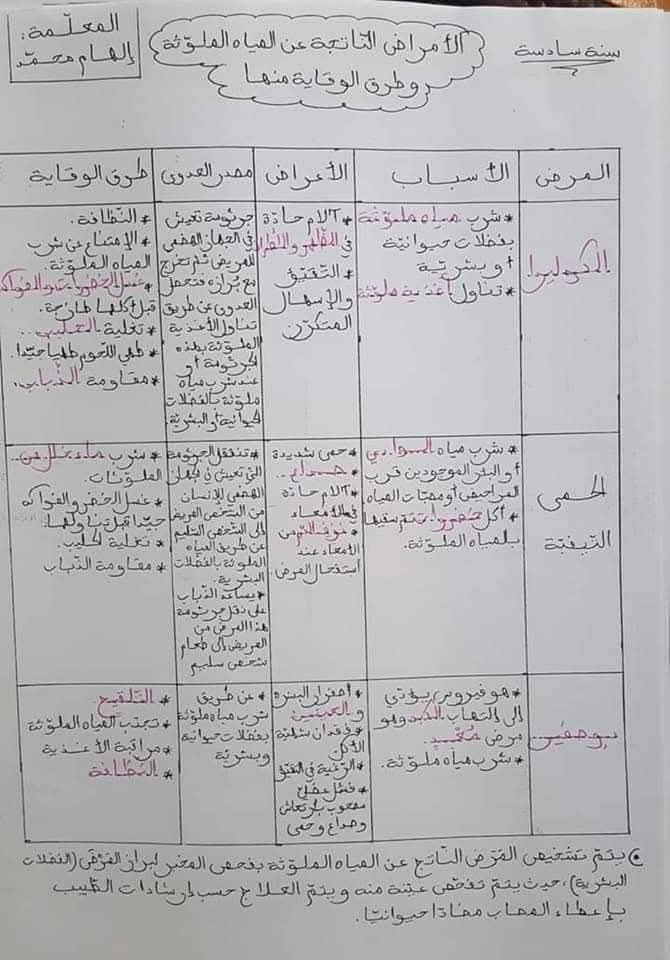 المعلّمة:
إلهام محمّد
الأمراض النّاتجة عن المياه الملوّثة
وطرق الوقاية منها
سنة سادسة
المرض
الأسباب
الأعراض
مصدر العدوى
طرق الوقاية
الكوليرا
* شرب مياه ملوّثة
بفضلات حيوانيّة
أو بشريّة
* تناول أغذية ملوّثة
* آلام حادّة
في الظّهر والأطراف
* التّقيّؤ
والإسهال
المتكرّر.
جرثومة تعيش
في الجهاز الهضمي
للمريض ثمّ تخرج
مع برازه فتحصل
العدوى عن طريق
تناول الأغذية
الملوّثة بهذه
الجرثومة أو
عند شرب مياه
ملوّثة بالفضلات
الحيوانيّة أو البشريّة.
* النّظافة.
* الإمتناع عن شرب
المياه الملوّثة.
* غسل الخضر والفواكه
قبل أكلها طازجة.
* تغلية الحليب..
* طهي اللّحوم طهيا جيّدا.
* مقاومة الذّباب.
الحمى
التّيفيّة
* شرب مياه الـوادي
أو البئر الموجودين قرب
المراحيض أو مصبّات المياه
* أكل خضروات يتمّ سقيها
بالمياه الملوّثة.
* حمى شديدة
* صداع..
* آلام حادّة
في الأمعاء
* نزف الدّم من
الأمعاء عند
استفحال المرض.
* تنتقل الجرثومة
التي تعيش في الجهاز
الهضمي للإنسان
من الشّخص المريض
إلى الشّخص السّليم
عن طريق المياه
الملوّثة بالفضلات
البشرية.
* يساعد الذّباب
على نقل جرثومة
هذا المرض من
المريض إلى طعام
شخص سليم
* شرب ماء خال من..
الملوّثات.
* غسل الخضر والفواكه
جيّدا قبل تناولها.
* تغلية الحليب.
* مقاومة الذّباب
بوصفير..
* هو فيروس يؤدّي
إلى إلتهاب الكبد وهو
مرض معْدٍ.
* شرب مياه ملوّثة.
* إصفرار البشرة
والعينين
* فقدان شهيّة
الأكل
* الرّغبة في التّقيّؤ
* فشل عضلي
مصحوب بارتعاش
وصداع وحمى
* عن طريق
شرب مياه ملوّثة
بفضلات حيوانيّة
وبشريّة
* التّلقيح.
* تجنّب المياه الملوّثة
* مراقبة الأغذية
* النّظافة
يتمّ تشخيص المرَض النّاتج عن المياه الملوّثة بفحص المخبر لبراز المَرْضَى (الفضلات
البشرية)، حيث يتمّ تفحّص عيّنة منه ويتمّ العلاج حسب إرشادات الطّبيب
بإعطاء المصاب مضادّا حيوانيّا.